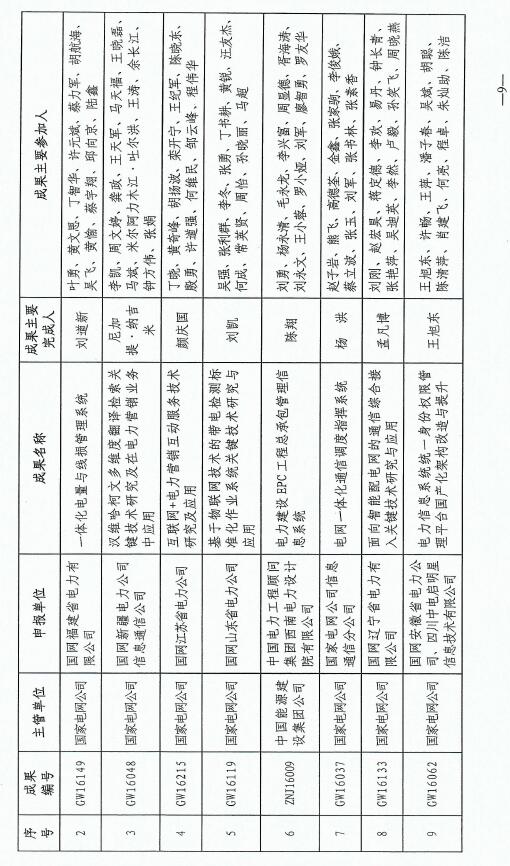 序号
成果编号
主管单位
申报单位
成果名称
成果主要完成人
成果主要参加人
2
GW16149
国家电网公司
国网福建省电力有
限公司
一体化电量与线损管理系统
刘道新
叶勇、黄文思、丁智华、许元斌、蔡力军、胡航海、
吴飞、黄愉、蔡宇翔、邱向京、陆鑫
3
GW16048
国家电网公司
国网新疆电力公司
信息通信公司
汉维哈柯文多维度翻译检索关
键技术研究及在电力营销业务
中应用
尼加
提·纳吉
米
李凯、周文婷、龚政、王天军、马天福、王晓磊、
马斌、米尔阿力木江·吐尔洪、王涛、余长江、
钟方伟、张娴
4
GW16215
国家电网公司
国网江苏省电力公司
互联网+电力营销互动服务技术
研究及应用
颜庆国
丁晓、黄奇峰、胡扬波、栾开宁、王纪军、陈晓东、
殷勇、许道强、何维民、邹云峰、程伟华
5
GW16119
国家电网公司
国网山东省电力公司
基于物联网技术的带电检测标
准化作业系统关键技术研究与
应用
刘凯
吴强、张利群、李冬、张勇、丁书耕、黄锐、汪友杰、
何成、常英贤、周怡、孙晓丽、马超
6
ZNJ16009
中国能源建
设集团公司
中国电力工程顾问
集团西南电力设计
院有限公司
电力建设EPC工程总承包管理信
息系统
陈翔
刘勇、杨永清、毛永龙、李兴富、周显德、胥海涛、
刘永文、王小蓉、罗小娅、刘军、廖智勇、罗友华
7
GW16037
国家电网公司
国家电网公司信息
通信分公司
电网一体化通信调度指挥系统
杨洪
赵子岩、熊飞、高德荃、金鑫、张家驹、李俊娥、
蔡立波、张玉、刘军、张书林、张素香
8
GW16133
国家电网公司
国网辽宁省电力有
限公司
面向智能配电网的通信综合接
入关键技术研究与应用
孟凡博
刘刚、赵宏昊、蒋定德、李欢、易丹、钟长青、
张艳萍、吴迪英、李然、卢毅、孙笑飞、周晓燕
9
GW16062
国家电网公司
国网安徽省电力公
司、四川中电启明星
信息技术有限公司
电力信息系统统一身份权限管
理平台国产化架构改造与提升
王旭东
王旭东、许畅、王萍、潘子春、吴斌、胡聪、
陈清萍、肖建飞、何亮、程卓、朱灿助、陈洁
—9—